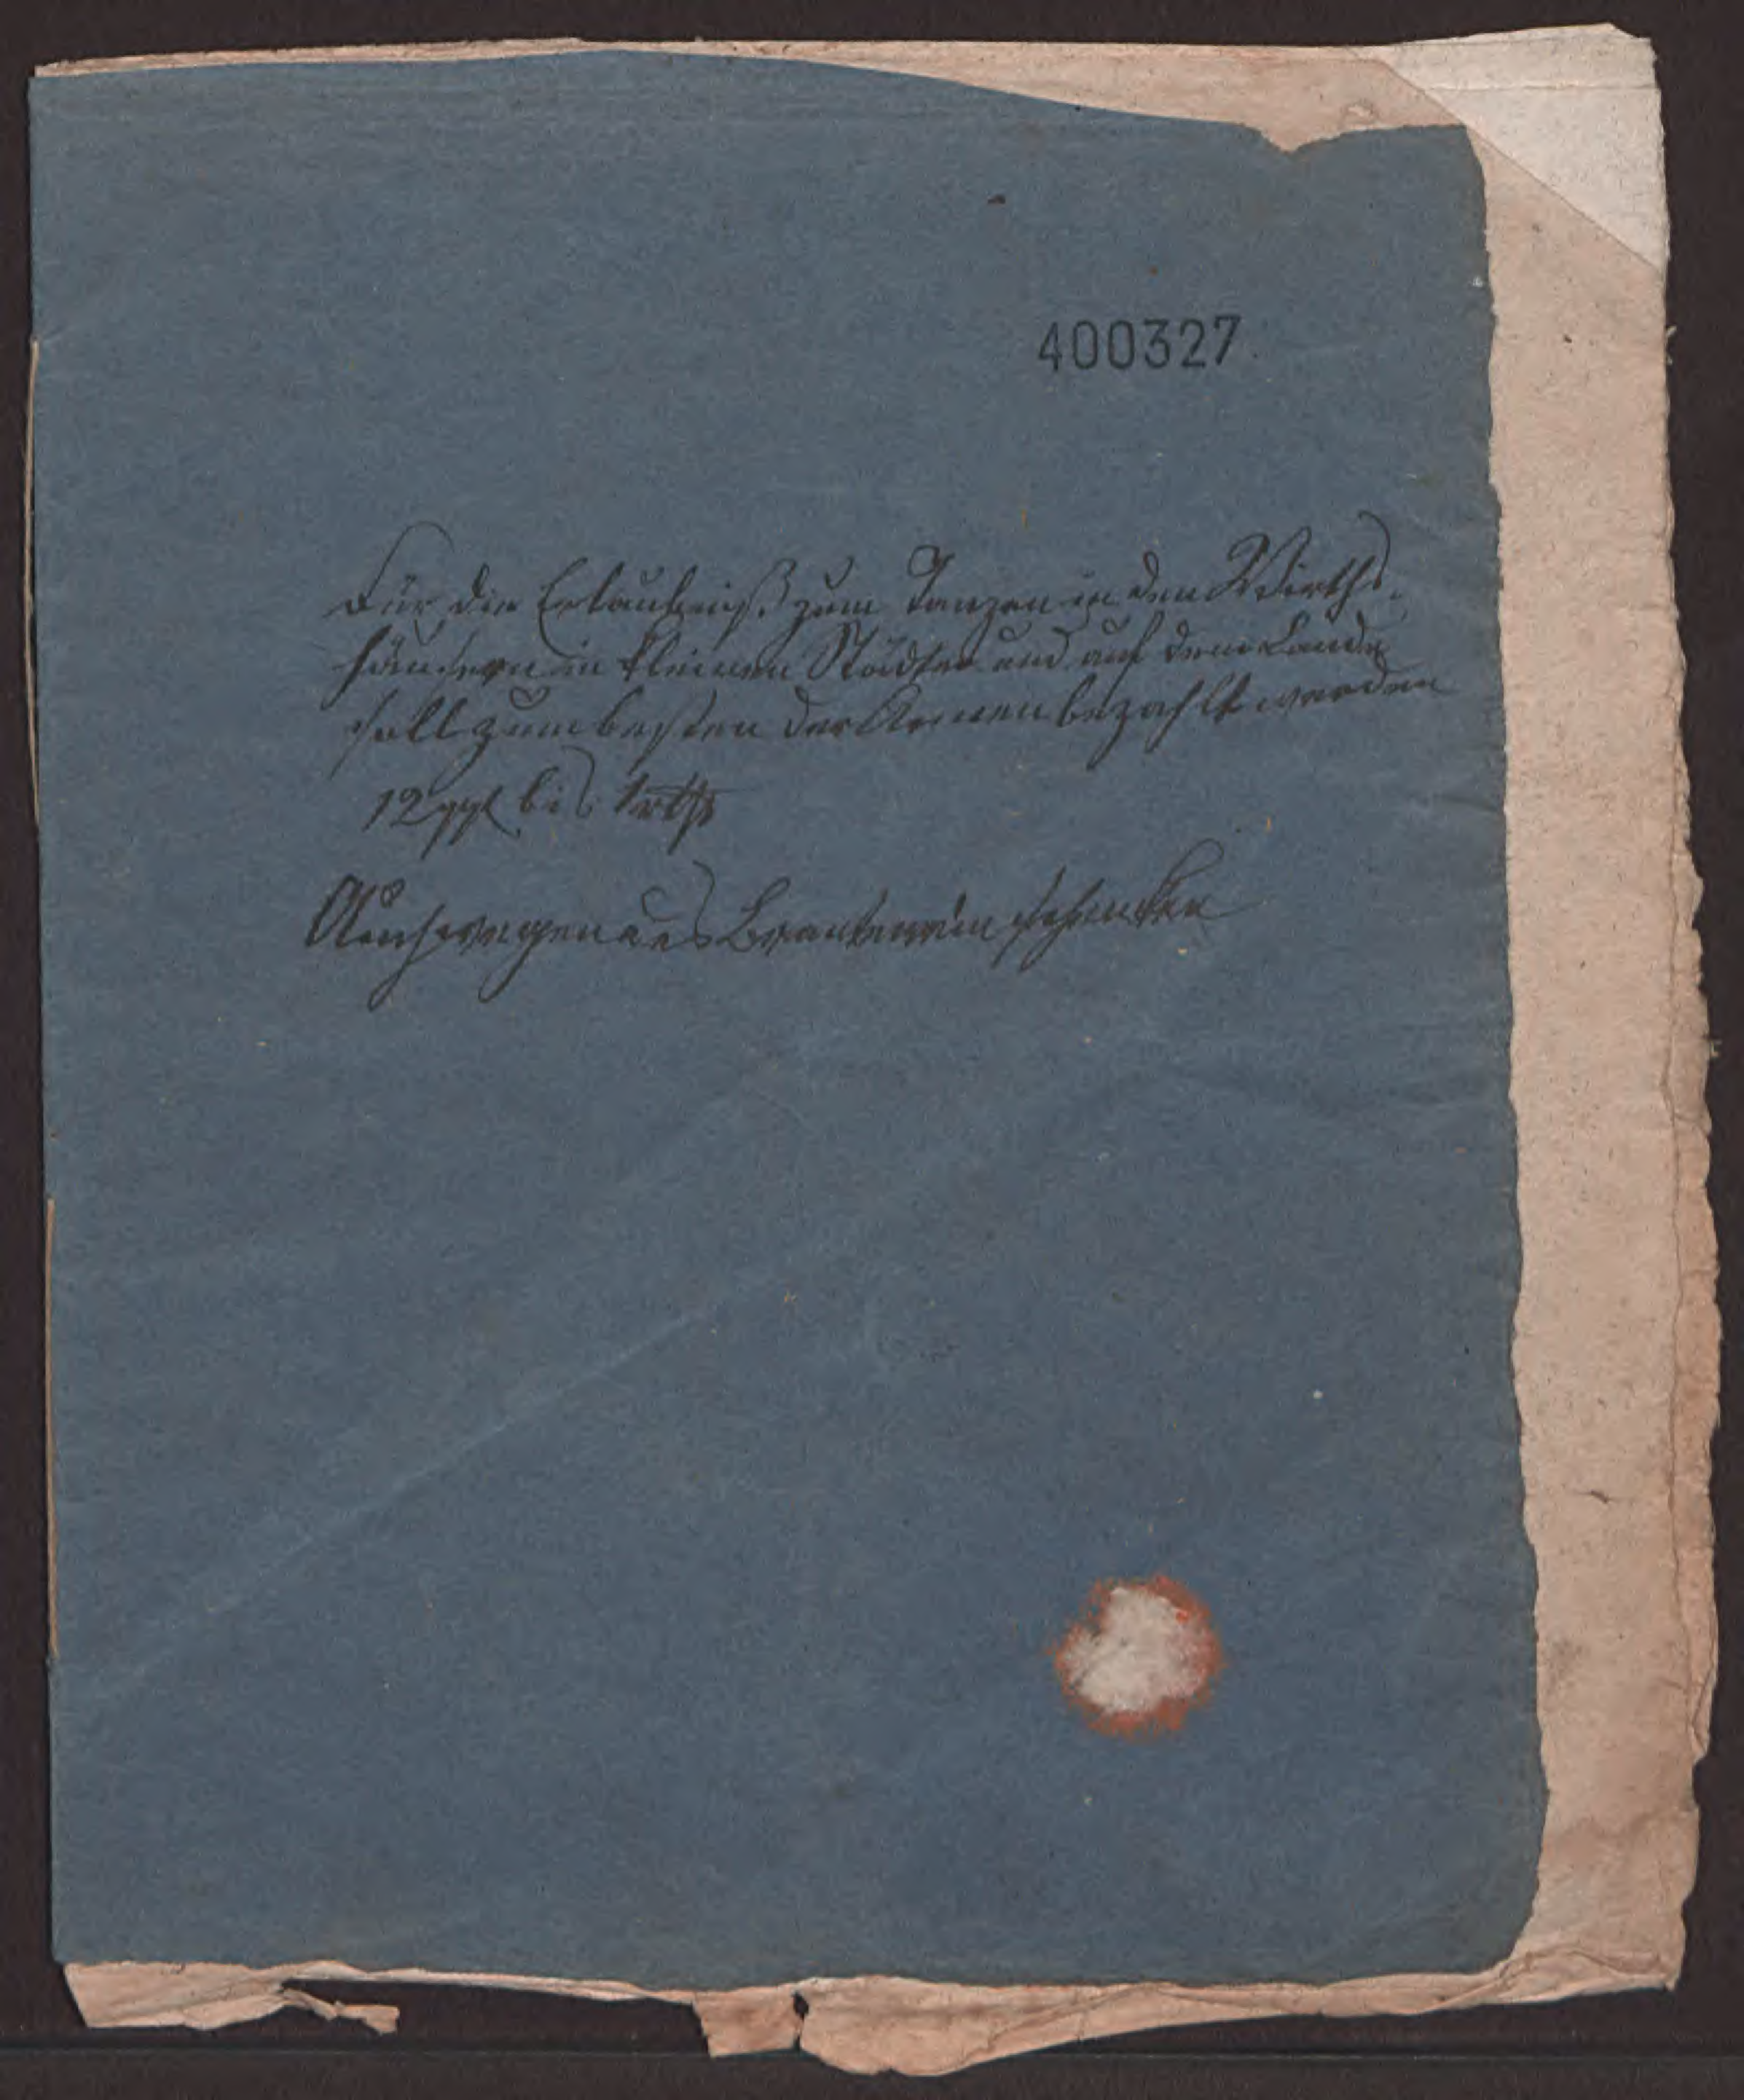 400327
Für die Erlaubniß zum Tanzen in den Wirths-
häusern in kleinen Städten und auf dem Lande
soll zum besten der Armen bezahlt werden
12 ggl bis 1 rth
Auch wegen des Brantewein schencken